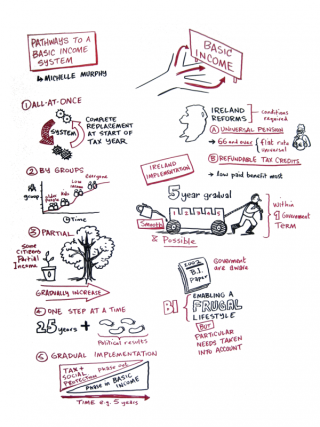 PATHWAYS TO A
BASIC INCOME
SYSTEM
MICHELLE MURPHY
BASIC
INCOME
① ALL-AT-ONCE
SYSTEM
COMPLETE
REPLACEMENT
AT START OF
TAX YEAR
② BY GROUPS
group
Older
People
Kids
Low
income
Everyone
Time
③ PARTIAL
some
citizens
Partial
Income
GRADUALLY INCREASE
④ ONE STEP AT A TIME
25 years +
Political results
GRADUAL IMPLEMENTATION
TAX +
SOCIAL
PROTECTION
phase out
Phase in BASIC
INCOME
TIME e.g. 5 years
IRELAND
REFORMS
conditions
required
Ⓐ UNIVERSAL PENSION
→ 66 and over
flat rate
universal
Ⓑ REFUNDABLE TAX CREDITS
→ low paid benefit most
IRELAND
IMPLEMENTATION
5 year gradual
1 2 3 4 5
Smooth
& Possible
Within
1 Government
TERM
2002
B.I.
Paper
Government
are aware
BI
ENABLING A
FRUGAL
LIFESTYLE
BUT
PARTICULAR
NEEDS TAKEN
INTO ACCOUNT